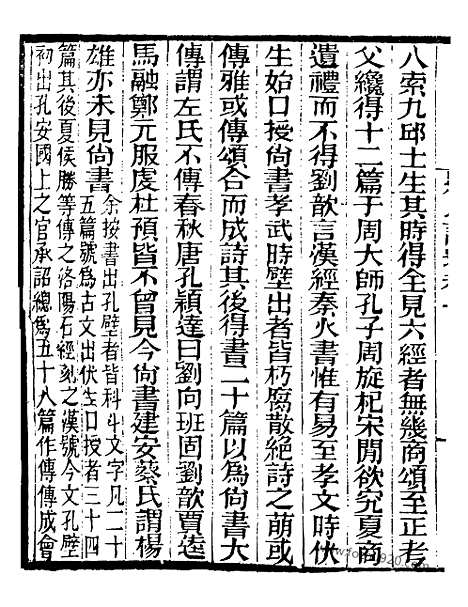 八索九邱士生其時得全見六經者無幾商頌至正考
父纔得十二篇于周大師孔子周旋杞宋閒欲究夏商
遺禮而不得劉歆言漢經秦火書惟有易至孝文時伏
生始口授尚書孝武時壁出者皆朽腐散絕詩之萌或
傳雅或傳頌合而成詩其後得書二十篇以為尚書大
傳謂左氏不傳春秋唐孔穎達曰劉向班固劉歆賈逵
馬融鄭元服虔杜預皆不曾見今尚書建安蔡氏謂楊
雄亦未見尚書
余按書出孔壁者皆科斗文字凡二十
五篇號為古文出伏生口授者三十四
篇其後夏侯勝等傳之洛陽石經刻之漢號今文孔壁
初出孔安國上之官承詔總為五十八篇作傳傳成會